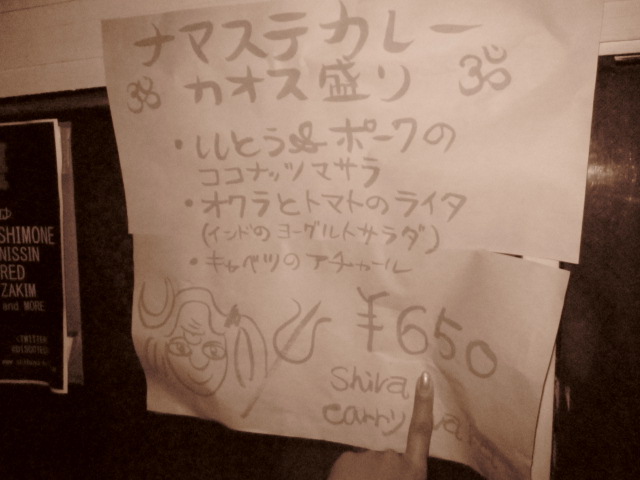 ナマステカレー
ॐ カオス盛り ॐ
・ししとう&ポークの
ココナッツマサラ
・オクラとトマトのライタ
(インドのヨーグルトサラダ)
・キャベツのアチャール
¥650
Shiva
curry
SHIMONE
NISSIN
RED
ZAKIM
and MORE